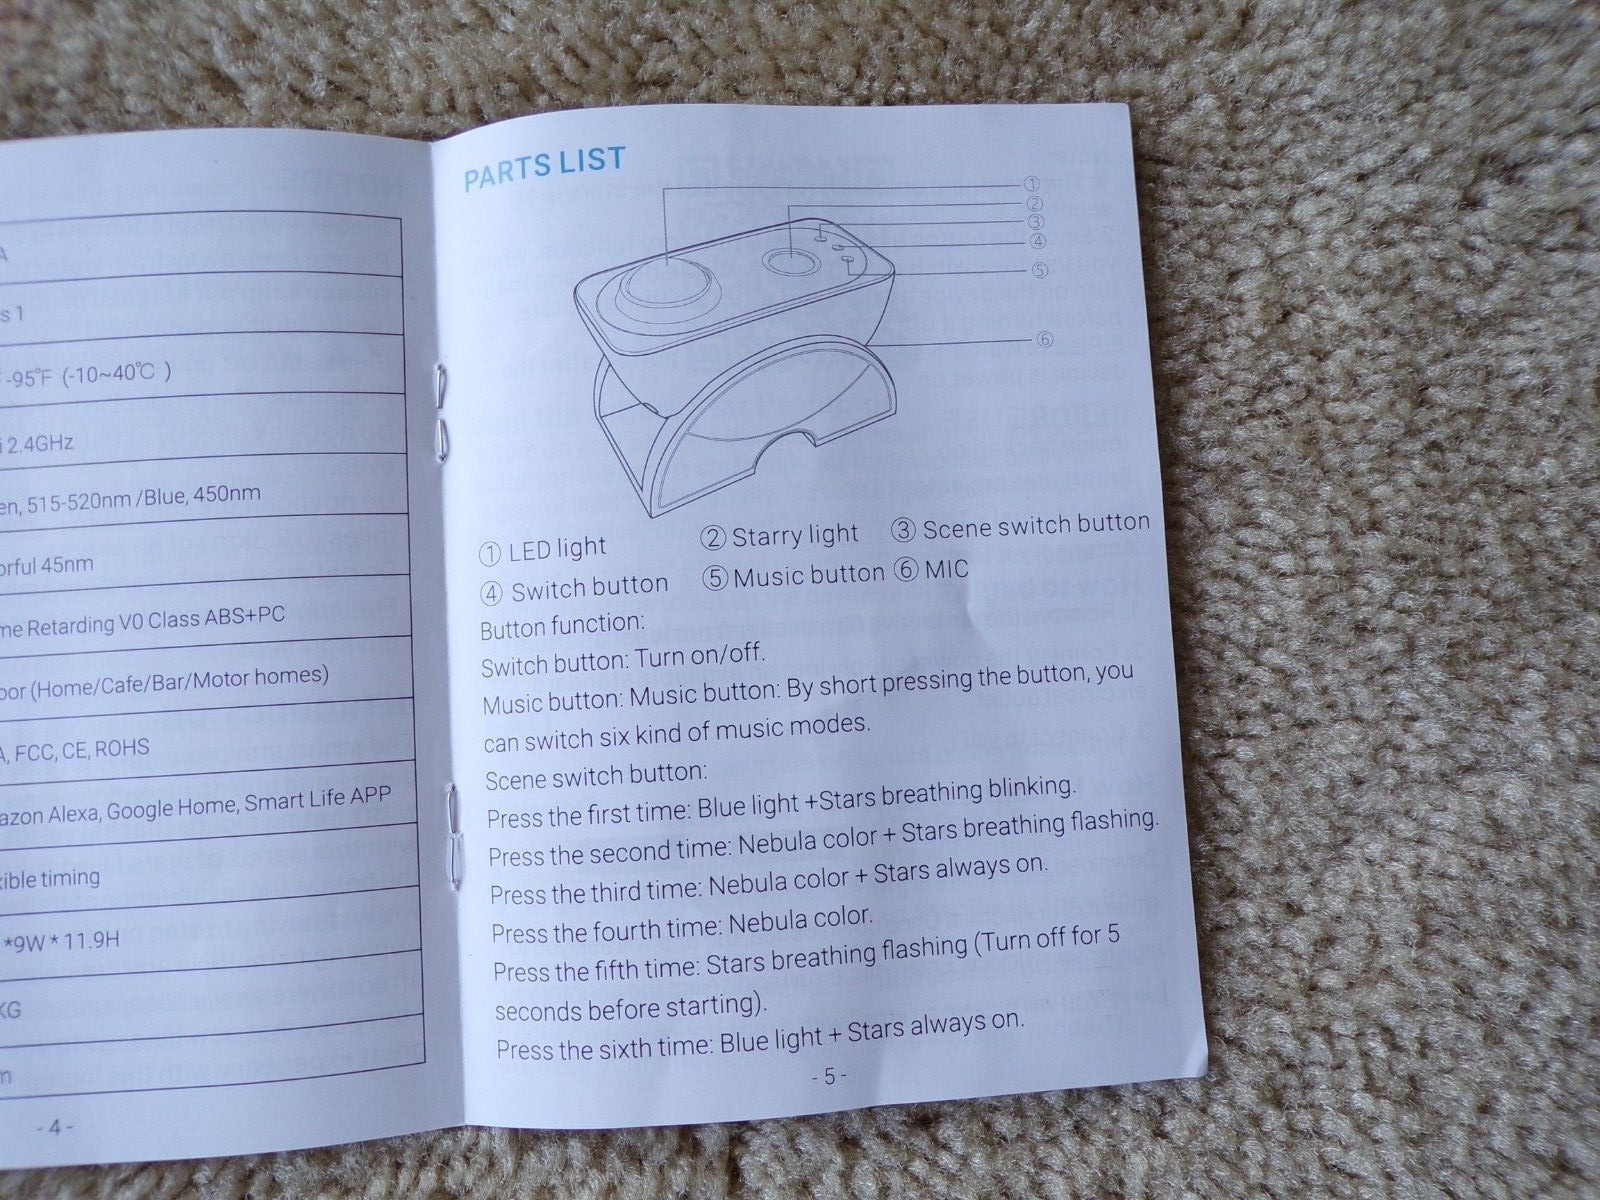 s 1
-95°F (-10~40℃ )
2.4GHz
515-520nm /Blue, 450nm
45nm
Retarding V0 Class ABS+PC
(Home/Cafe/Bar/Motor homes)
FCC, CE, ROHS
Alexa, Google Home, Smart Life APP
timing
*9W * 11.9H
KG
- 4 -
PARTS LIST
①
②
③
④
⑤
⑥
① LED light ② Starry light ③ Scene switch button
④ Switch button ⑤ Music button ⑥ MIC
Button function:
Switch button: Turn on/off.
Music button: Music button: By short pressing the button, you
can switch six kind of music modes.
Scene switch button:
Press the first time: Blue light +Stars breathing blinking.
Press the second time: Nebula color + Stars breathing flashing.
Press the third time: Nebula color + Stars always on.
Press the fourth time: Nebula color.
Press the fifth time: Stars breathing flashing (Turn off for 5
seconds before starting).
Press the sixth time: Blue light + Stars always on.
- 5 -